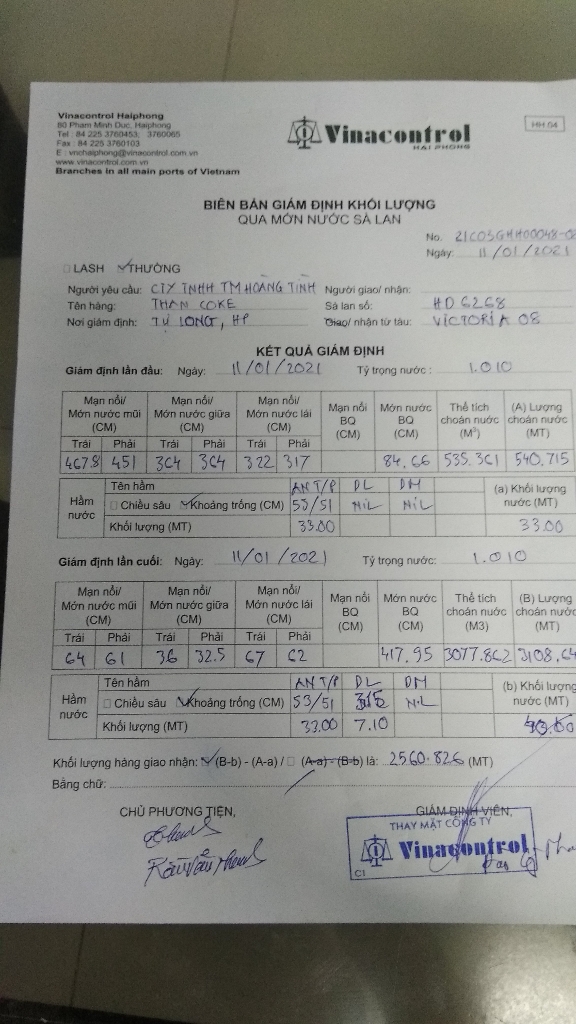 Vinacontrol Haiphong
80 Pham Minh Duc, Haiphong
Tel : 84 225 3760453, 3760065
Fax : 84 225 3760103
E : vnchaiphong@vinacontrol.com.vn
www.vinacontrol.com.vn
Branches in all main ports of Vietnam
Vinacontrol
HAI PHONG
HH 04
BIÊN BẢN GIÁM ĐỊNH KHỐI LƯỢNG
QUA MỚN NƯỚC SÀ LAN
No.
Ngày: 11/01/2021
LASH THƯỜNG
Người yêu cầu: CTY TNHH TM HOÀNG TÌNH Người giao/ nhận:
Tên hàng: THAN COKE Sà lan số: HD 6268
Nơi giám định: TỰ LONG, HP Giao/ nhận từ tàu: VICTORIA 08
KẾT QUẢ GIÁM ĐỊNH
Giám định lần đầu: Ngày: 11/01/2021 Tỷ trọng nước : 1.010
Mạn nổi/ Mớn nước mũi (CM) Mạn nổi/ Mớn nước giữa (CM) Mạn nổi/ Mớn nước lái (CM) Mạn nổi BQ (CM) Mớn nước BQ (CM) Thể tích choán nước (M³) (A) Lượng choán nước (MT)
Trái Phải Trái Phải Trái Phải
467.8 451 364 364 322 317 84.66 535.361 540.715
Hầm nước Tên hầm AN T/P DL DM (a) Khối lượng nước (MT)
Chiều sâu Khoảng trống (CM) 53/51 NiL NiL
Khối lượng (MT) 33.00 33.00
Giám định lần cuối: Ngày: 11/01/2021 Tỷ trọng nước: 1.010
Mạn nổi/ Mớn nước mũi (CM) Mạn nổi/ Mớn nước giữa (CM) Mạn nổi/ Mớn nước lái (CM) Mạn nổi BQ (CM) Mớn nước BQ (CM) Thể tích choán nước (M3) (B) Lượng choán nước (MT)
Trái Phải Trái Phải Trái Phải
64 61 36 32.5 67 62 417.95 3077.862 3108.64
Hầm nước Tên hầm AN T/P DL DM (b) Khối lượng nước (MT)
Chiều sâu Khoảng trống (CM) 53/51 NiL
Khối lượng (MT) 33.00 7.10
Khối lượng hàng giao nhận: (B-b) - (A-a) / (A-a) - (B-b) là: 2560.826 (MT)
Bằng chữ:
CHỦ PHƯƠNG TIỆN, GIÁM ĐỊNH VIÊN,
THAY MẶT CÔNG TY
Vinacontrol
C1